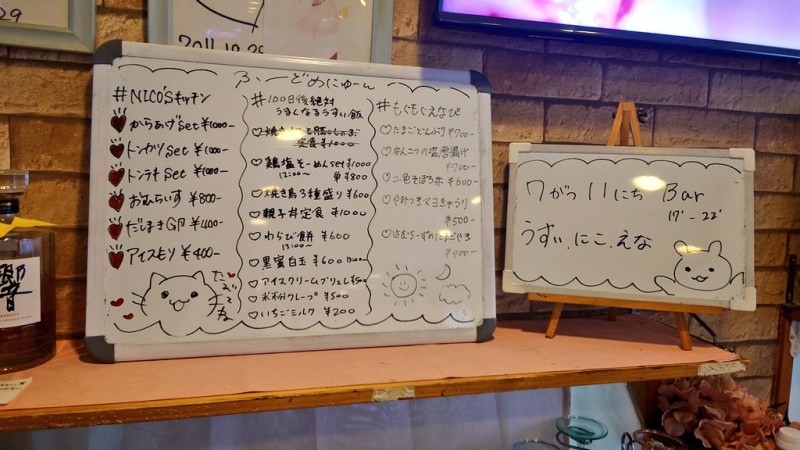 29
2011.10.29
ふーどめにゅーん
#NICO'Sキッチン
からあげset ¥1000-
トンカツset ¥1000-
トンテキset ¥1000-
おむらいす ¥800-
だしまきGP ¥1100-
アイスモリ ¥400-
たべてな
#100日後絶対
うまくなるうすい飯
定食 ¥1000
鶏塩そーめんset ¥1000
12:00〜 単¥800
焼き鳥3種盛り ¥600
親子丼定食 ¥1000
わらび餅 ¥600
13:00〜
黒蜜白玉 ¥600
アイスクリームブリュレ ¥500
米粉クレープ ¥500
いちごミルク ¥200
#もぐもぐえなぴ
たまごどんぶり ¥700-
なんこつの塩唐揚げ
¥700-
二色そぼろ丼 ¥600-
やみつきマヨきゅうり
¥500-
はむちーずのたまごやき
¥400-
7がつ11にち Bar
17'-22'
うすい.にこ.えな
響